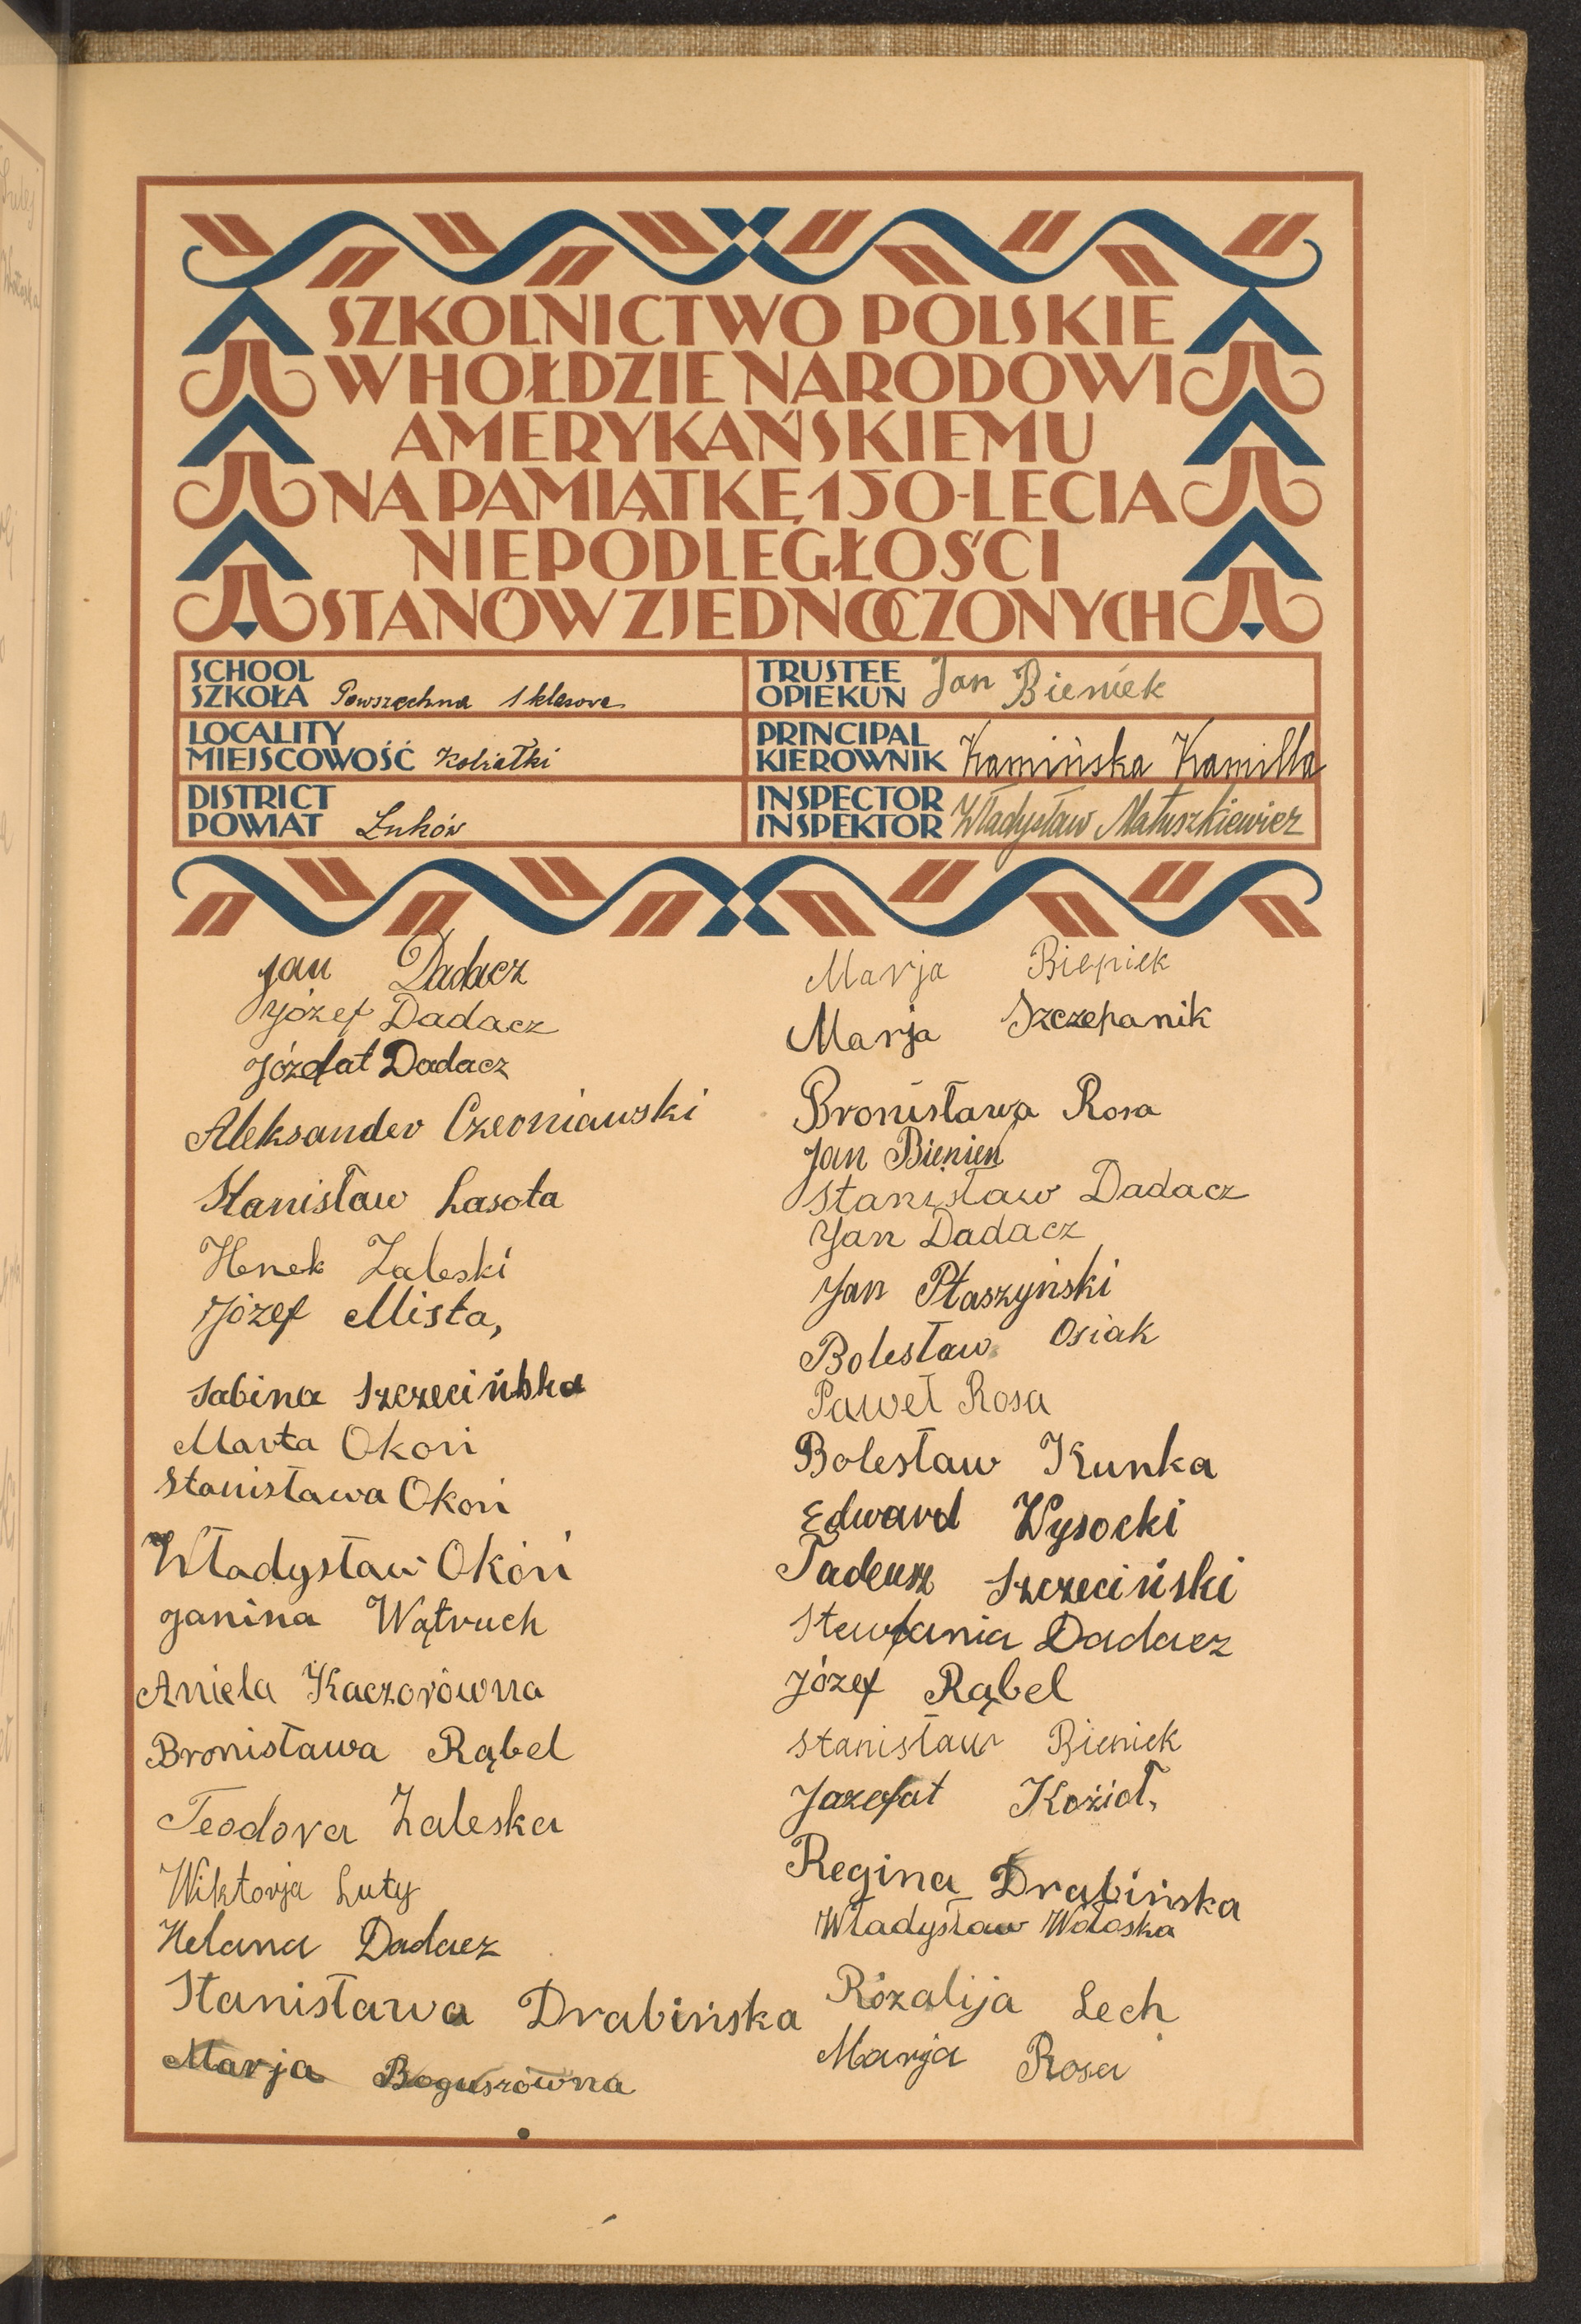 SZKOLNICTWO POLSKIE
W HOŁDZIE NARODOWI
AMERYKAŃSKIEMU
NA PAMIĄTKĘ 150-LECIA
NIEPODLEGŁOŚCI
STANÓW ZJEDNOCZONYCH
SCHOOL
SZKOŁA Powszechna 1 klasowa
LOCALITY
MIEJSCOWOŚĆ Kobiałki
DISTRICT
POWIAT Łuków
TRUSTEE
OPIEKUN Jan Bieniek
PRINCIPAL
KIEROWNIK Kamińska Kamilla
INSPECTOR
INSPEKTOR Władysław Matuszkiewicz
Jan Dadacz
Józef Dadacz
Józefat Dadacz
Aleksander Czerniawski
Stanisław Lasota
Henek Zaleski
Józef Mista,
Sabina Szczecińska
Marta Okoń
Stanisława Okoń
Władysław Okóń
Janina Wątruch
Aniela Kaczorówna
Bronisława Rąbel
Teodora Zaleska
Wiktorja Luty
Helana Dadacz
Stanisława Drabińska
Marja Boguszówna
Marja Bieniek
Marja Szczepanik
Bronisława Rosa
Jan Bienień
Stanisław Dadacz
Jan Dadacz
Jan Ptaszyński
Bolesław Osiak
Paweł Rosa
Bolesław Kunka
Edward Wysocki
Tadeusz Szczeciński
Stewfania Dadacz
Józef Rąbel
Stanisław Bieniek
Jazefat Kozioł,
Regina Drabińska
Władysław Wołoska
Rózalija Lech
Marja Rosa